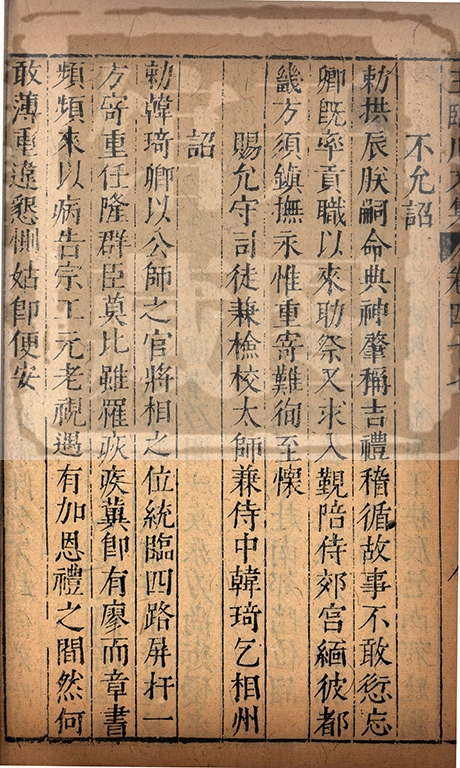 王臨川文集 卷四十七
不允詔
勑拱辰朕嗣命典神肇稱吉禮稽循故事不敢愆忘
卿旣率貢職以來助祭又求入覲陪侍郊宮緬彼都
畿方須鎮撫永惟重寄難徇至懷
賜允守司徒兼檢校太師兼侍中韓琦乞相州
詔
勑韓琦卿以公師之官將相之位統臨四路屏扞一
方寄重任隆群臣莫比雖罹疢疾冀卽有廖而章書
頻頻來以病告宗工元老視遇有加恩禮之間然何
敢薄重違懇惻姑卽便安